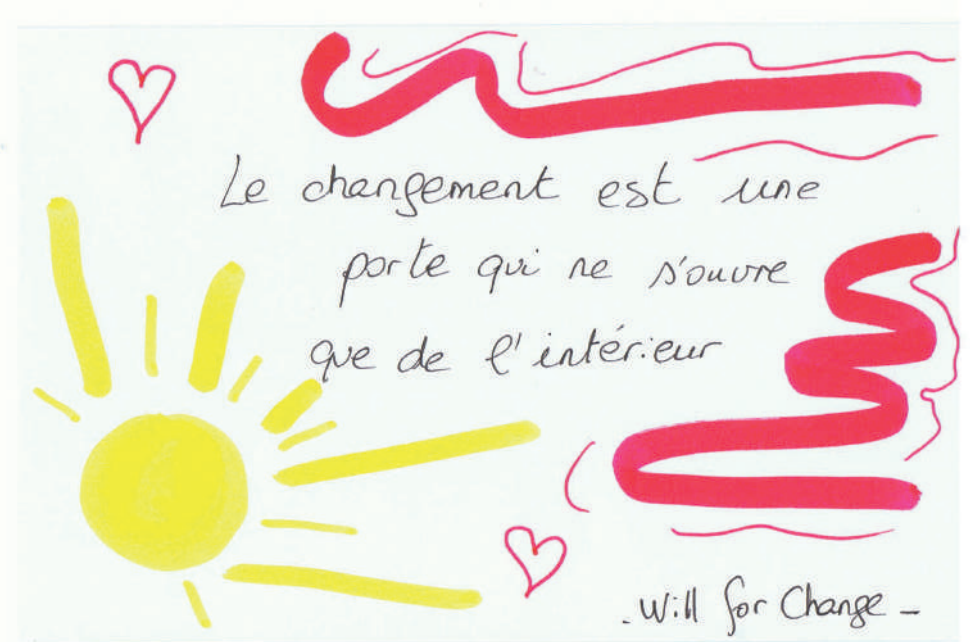 Le changement est une
porte qui ne s'ouvre
que de l'intérieur
- Will for Change -